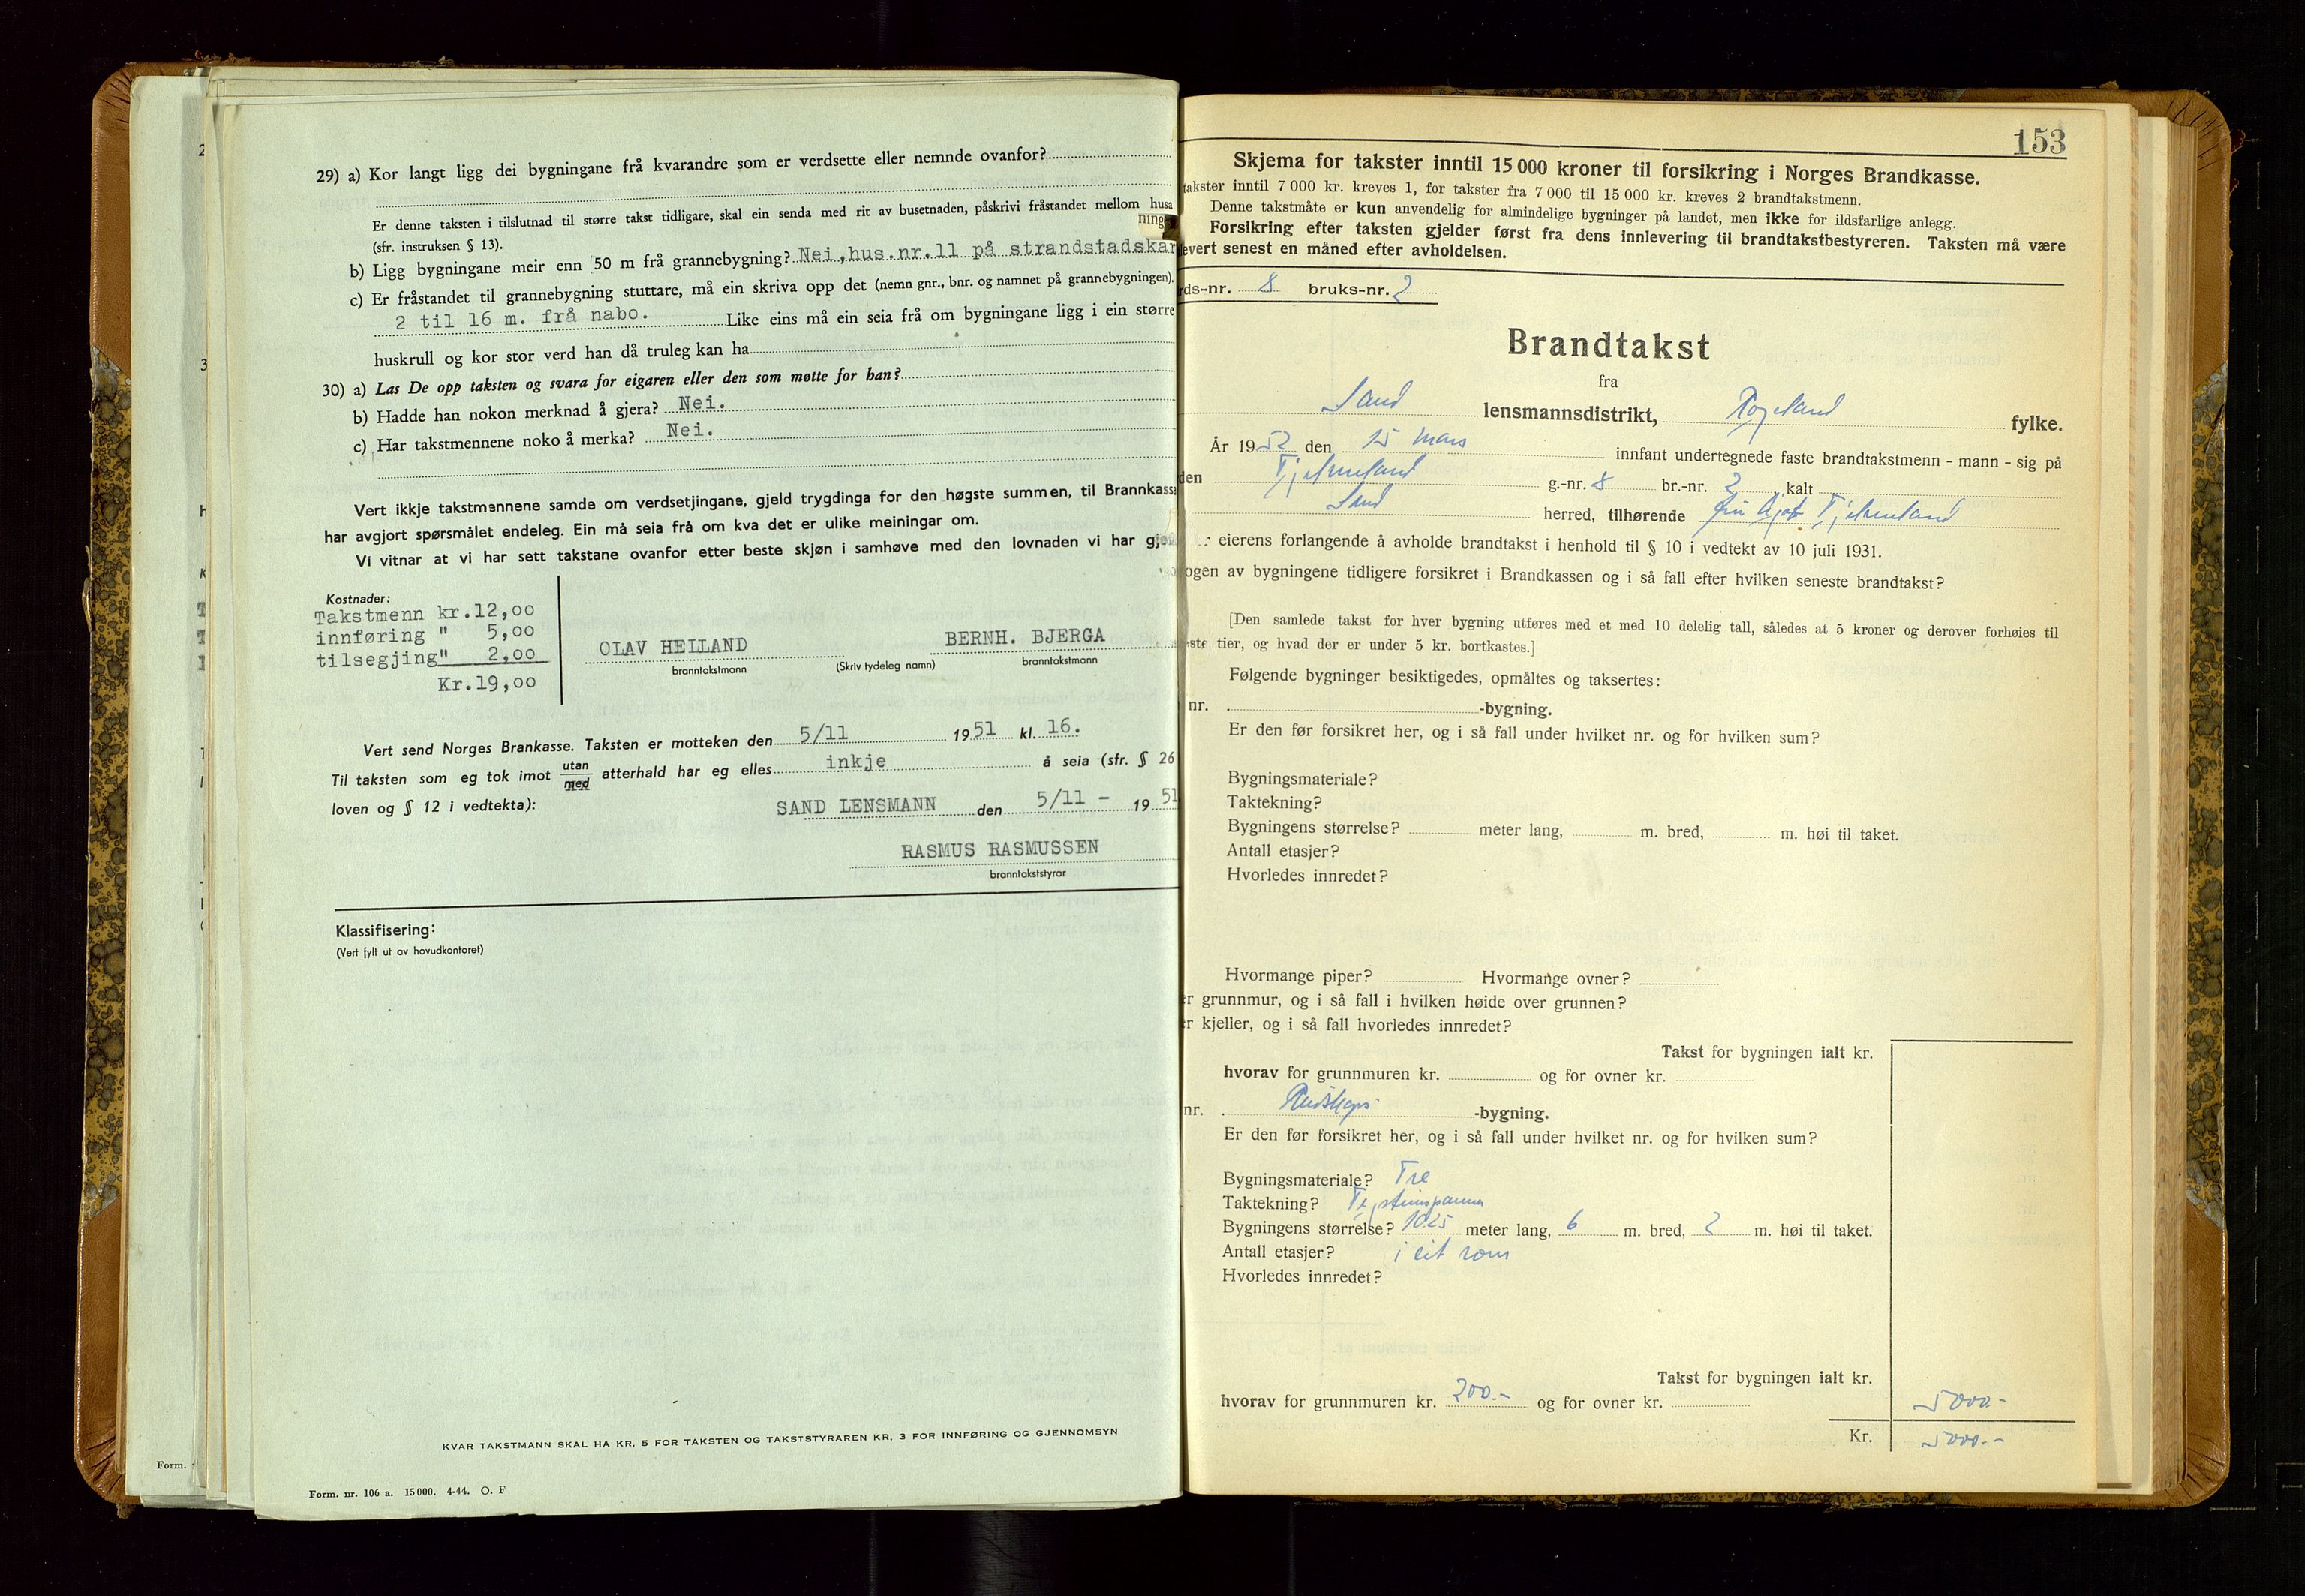 29) a) Kor langt ligg dei bygningane frå kvarandre som er verdsette eller nemnde ovanfor?
Er denne taksten i tilslutnad til større takst tidligare, skal ein senda med rit av busetnaden, påskrivi fråstandet mellom husa
(sfr. instruksen § 13).
b) Ligg bygningane meir enn 50 m frå grannebygning? Nei, hus.nr.11 på strandstadskar
c) Er fråstandet til grannebygning stuttare, må ein skriva opp det (nemn gnr., bnr. og namnet på grannebygningen).
2 til 16 m. frå nabo. Like eins må ein seia frå om bygningane ligg i ein større
huskrull og kor stor verd han då truleg kan ha
30) a) Las De opp taksten og svara for eigaren eller den som møtte for han?
b) Hadde han nokon merknad å gjera? Nei.
c) Har takstmennene noko å merka? Nei.
Vert ikkje takstmennene samde om verdsetjingane, gjeld trygdinga for den høgste summen, til Brannkassa
har avgjort spørsmålet endeleg. Ein må seia frå om kva det er ulike meiningar om.
Vi vitnar at vi har sett takstane ovanfor etter beste skjøn i samhøve med den lovnaden vi har gje
Kostnader:
Takstmenn kr.12,00
innføring " 5,00
tilsegjing" 2,00
Kr.19,00
OLAV HELLAND BERNH. BJERGA
branntakstmann (Skriv tydeleg namn) branntakstmann
Vert send Norges Brankasse. Taksten er motteken den 5/11 1951 kl. 16.
Til taksten som eg tok imot utan/med atterhald har eg elles inkje å seia (sfr. § 26
loven og § 12 i vedtekta):
SAND LENSMANN den 5/11 - 1951
RASMUS RASMUSSEN
branntakststyrar
Klassifisering:
(Vert fylt ut av hovudkontoret)
KVAR TAKSTMANN SKAL HA KR. 5 FOR TAKSTEN OG TAKSTSTYRAREN KR. 3 FOR INNFØRING OG GJENNOMSYN
Form. nr. 106 a. 15000. 4-44. O. F
Form.
153
Skjema for takster inntil 15 000 kroner til forsikring i Norges Brandkasse.
takster inntil 7 000 kr. kreves 1, for takster fra 7 000 til 15 000 kr. kreves 2 brandtakstmenn.
Denne takstmåte er kun anvendelig for almindelige bygninger på landet, men ikke for ildsfarlige anlegg.
Forsikring efter taksten gjelder først fra dens innlevering til brandtakstbestyreren. Taksten må være
evert senest en måned efter avholdelsen.
rds-nr. 8 bruks-nr. 2
Brandtakst
fra
Sand lensmannsdistrikt, Rogaland fylke.
År 1952 den 15 mars innfant undertegnede faste brandtakstmenn - mann - sig på
den Tjelmeland g.-nr. 8 br.-nr. 2 kalt
Sand herred, tilhørende Tjelmeland
r eierens forlangende å avholde brandtakst i henhold til § 10 i vedtekt av 10 juli 1931.
ogen av bygningene tidligere forsikret i Brandkassen og i så fall efter hvilken seneste brandtakst?
[Den samlede takst for hver bygning utføres med et med 10 delelig tall, således at 5 kroner og derover forhøies til
ste tier, og hvad der er under 5 kr. bortkastes.]
Følgende bygninger besiktigedes, opmåltes og taksertes:
nr. -bygning.
Er den før forsikret her, og i så fall under hvilket nr. og for hvilken sum?
Bygningsmateriale?
Taktekning?
Bygningens størrelse? meter lang, m. bred, m. høi til taket.
Antall etasjer?
Hvorledes innredet?
Hvormange piper? Hvormange ovner?
er grunnmur, og i så fall i hvilken høide over grunnen?
er kjeller, og i så fall hvorledes innredet?
Takst for bygningen ialt kr.
hvorav for grunnmuren kr. og for ovner kr.
nr. Reidskaps -bygning.
Er den før forsikret her, og i så fall under hvilket nr. og for hvilken sum?
Bygningsmateriale? Tre
Taktekning? Teglsteinspanner
Bygningens størrelse? 10.25 meter lang, 6 m. bred, 2 m. høi til taket.
Antall etasjer? i eit rom
Hvorledes innredet?
Takst for bygningen ialt kr.
hvorav for grunnmuren kr. 200.- og for ovner kr. 5000.-
Kr. 5000.-